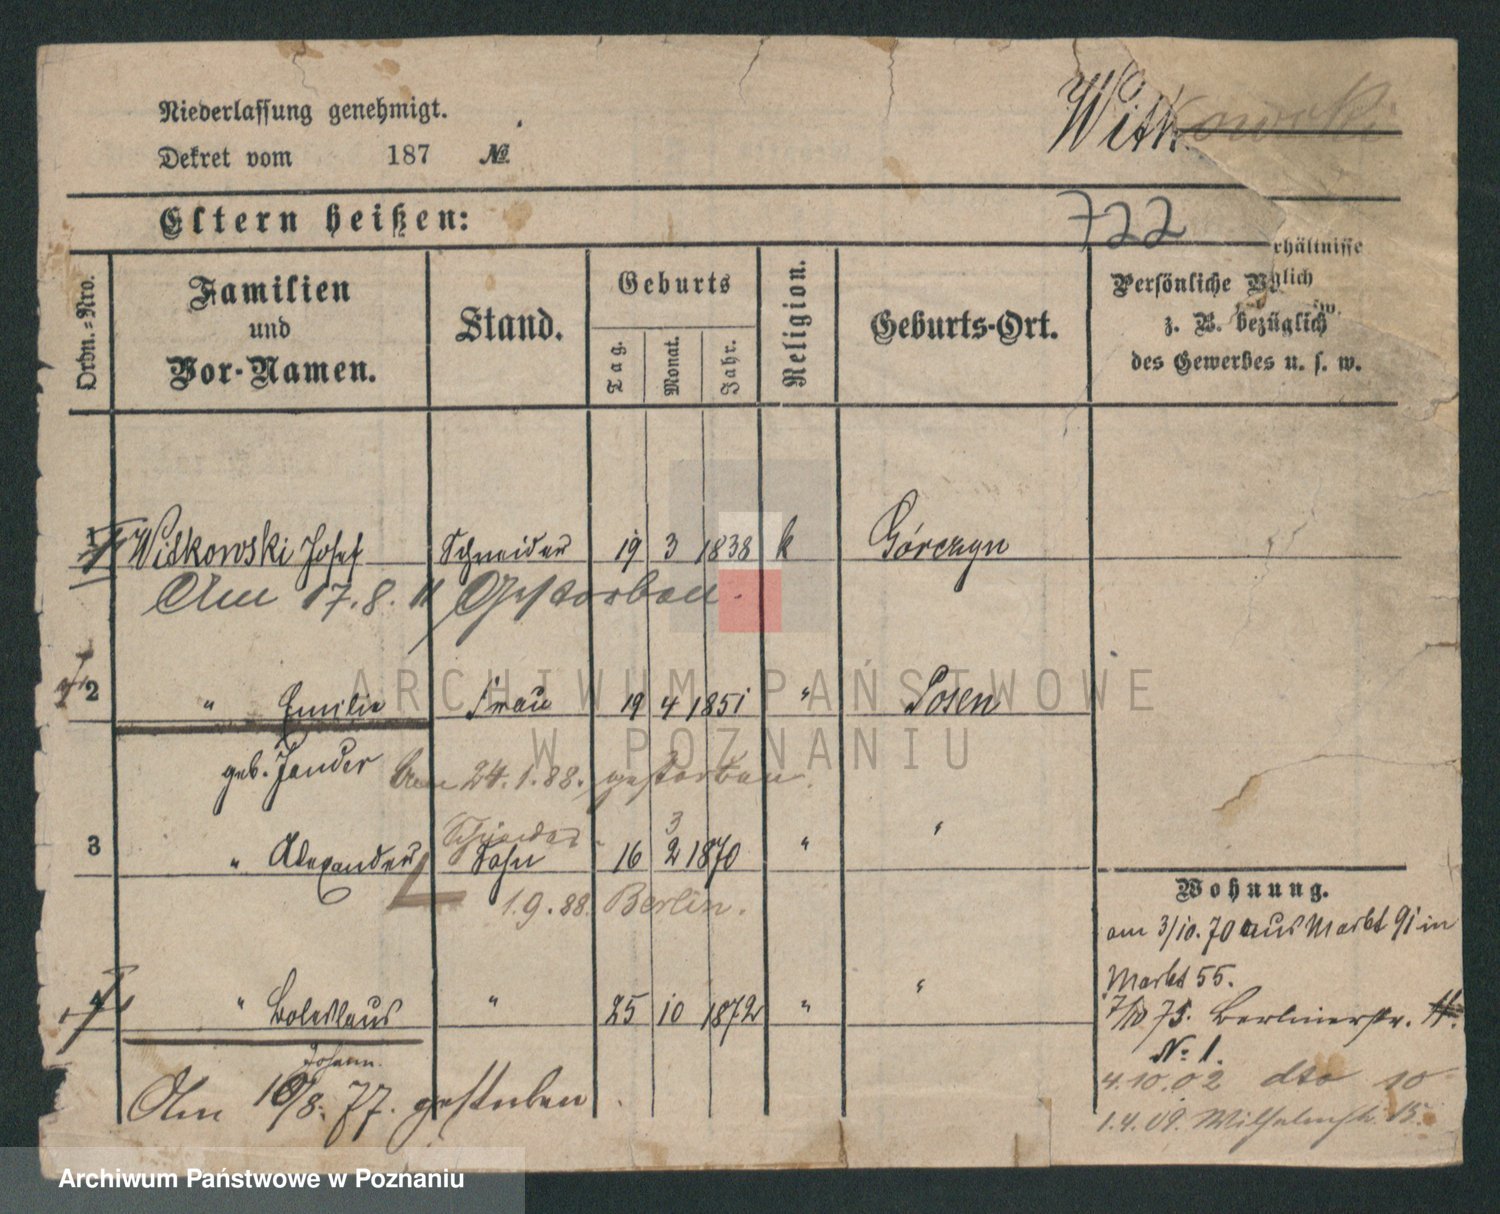 Niederlassung genehmigt.
Dekret vom 187 №
Witkowski
Eltern heißen:
722
Ordn.=Nro.
Familien
und
Vor-Namen.
Stand.
Geburts
Tag.
Monat.
Jahr.
Religion.
Geburts-Ort.
rhältnisse
Persönliche V
glich
z. B. bezüglich
des Gewerbes u. s. w.
1 Witkowski Josef Schneider 19 3 1838 k Górczyn
Am 17.8.11 Gestorben.
2 " Emilie Frau 19 4 1851 " Posen
geb. Jander Am 24.1.88. gestorben.
Schneider 3
3 " Alexander Sohn 16 2 1870 " "
1.9.88. Berlin.
4 " Boleslaus " 25 10 1872 " "
Johann.
Am 10/8. 77. gestorben.
Wohnung.
am 3/10. 70 aus Markt 91 in
Markt 55.
7/10 75. Berlinerstr. 11.
№ 1.
4.10.02 dto 10
1.4.09. Wilhelmstr. 15.
ARCHIWUM PAŃSTWOWE
W POZNANIU
Archiwum Państwowe w Poznaniu